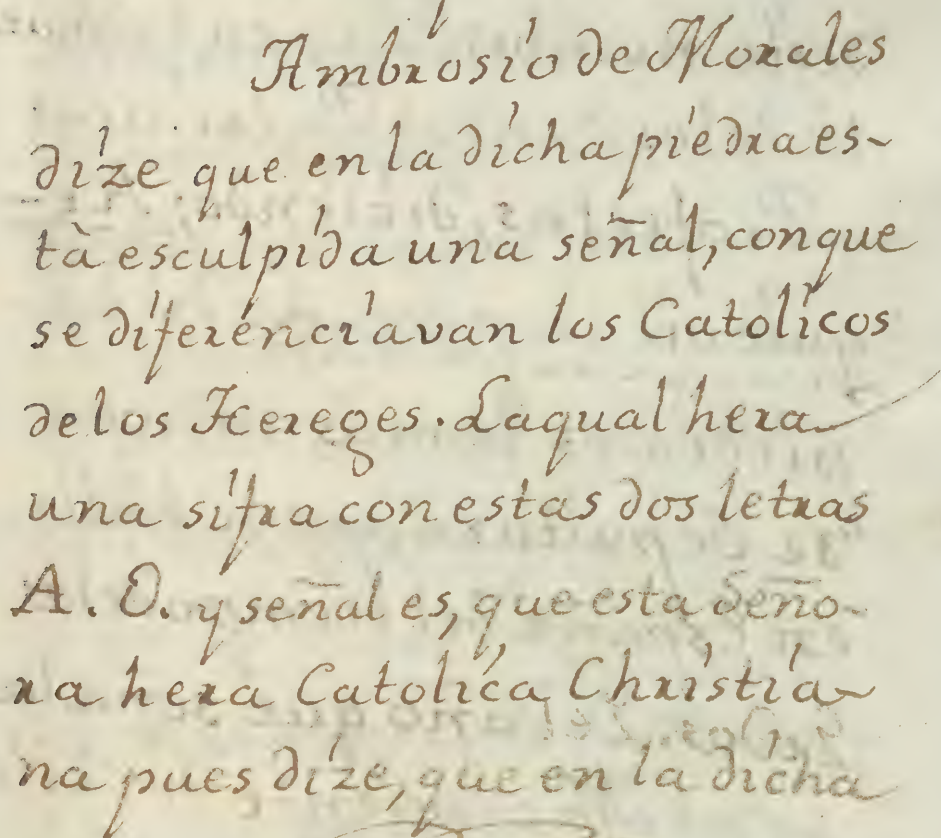 Ambrosio de Morales
dize que en la dicha piedra es-
tà esculpida una señal, conque
se diferenciavan los Catolicos
de los Hereges. Laqual hera
una sifra con estas dos letras
A. O. y señal es, que esta Seño-
ra hera Catolica Christia-
na pues dize, que en la dicha